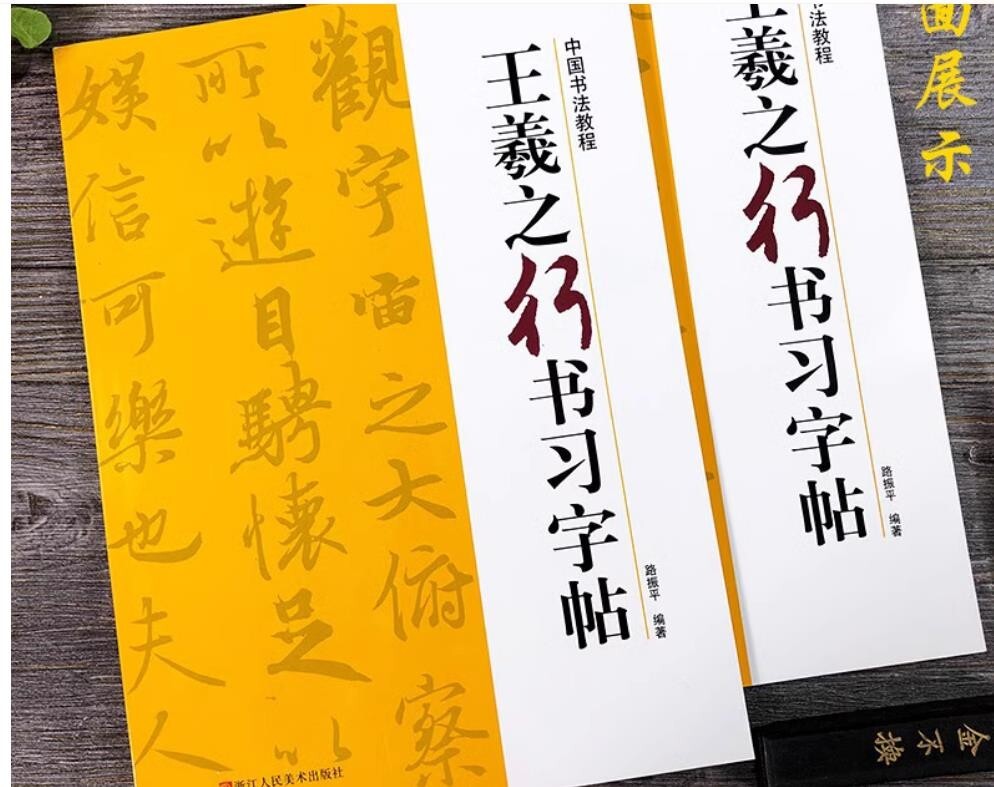 中国书法教程
王羲之行书习字帖
路振平 编著
觀宇宙之大俯察
所以遊目騁懷足以
娛信可樂也夫人
浙江人民美术出版社
书法教程
王羲之行书习字帖
路振平 编著
面展示
金不換